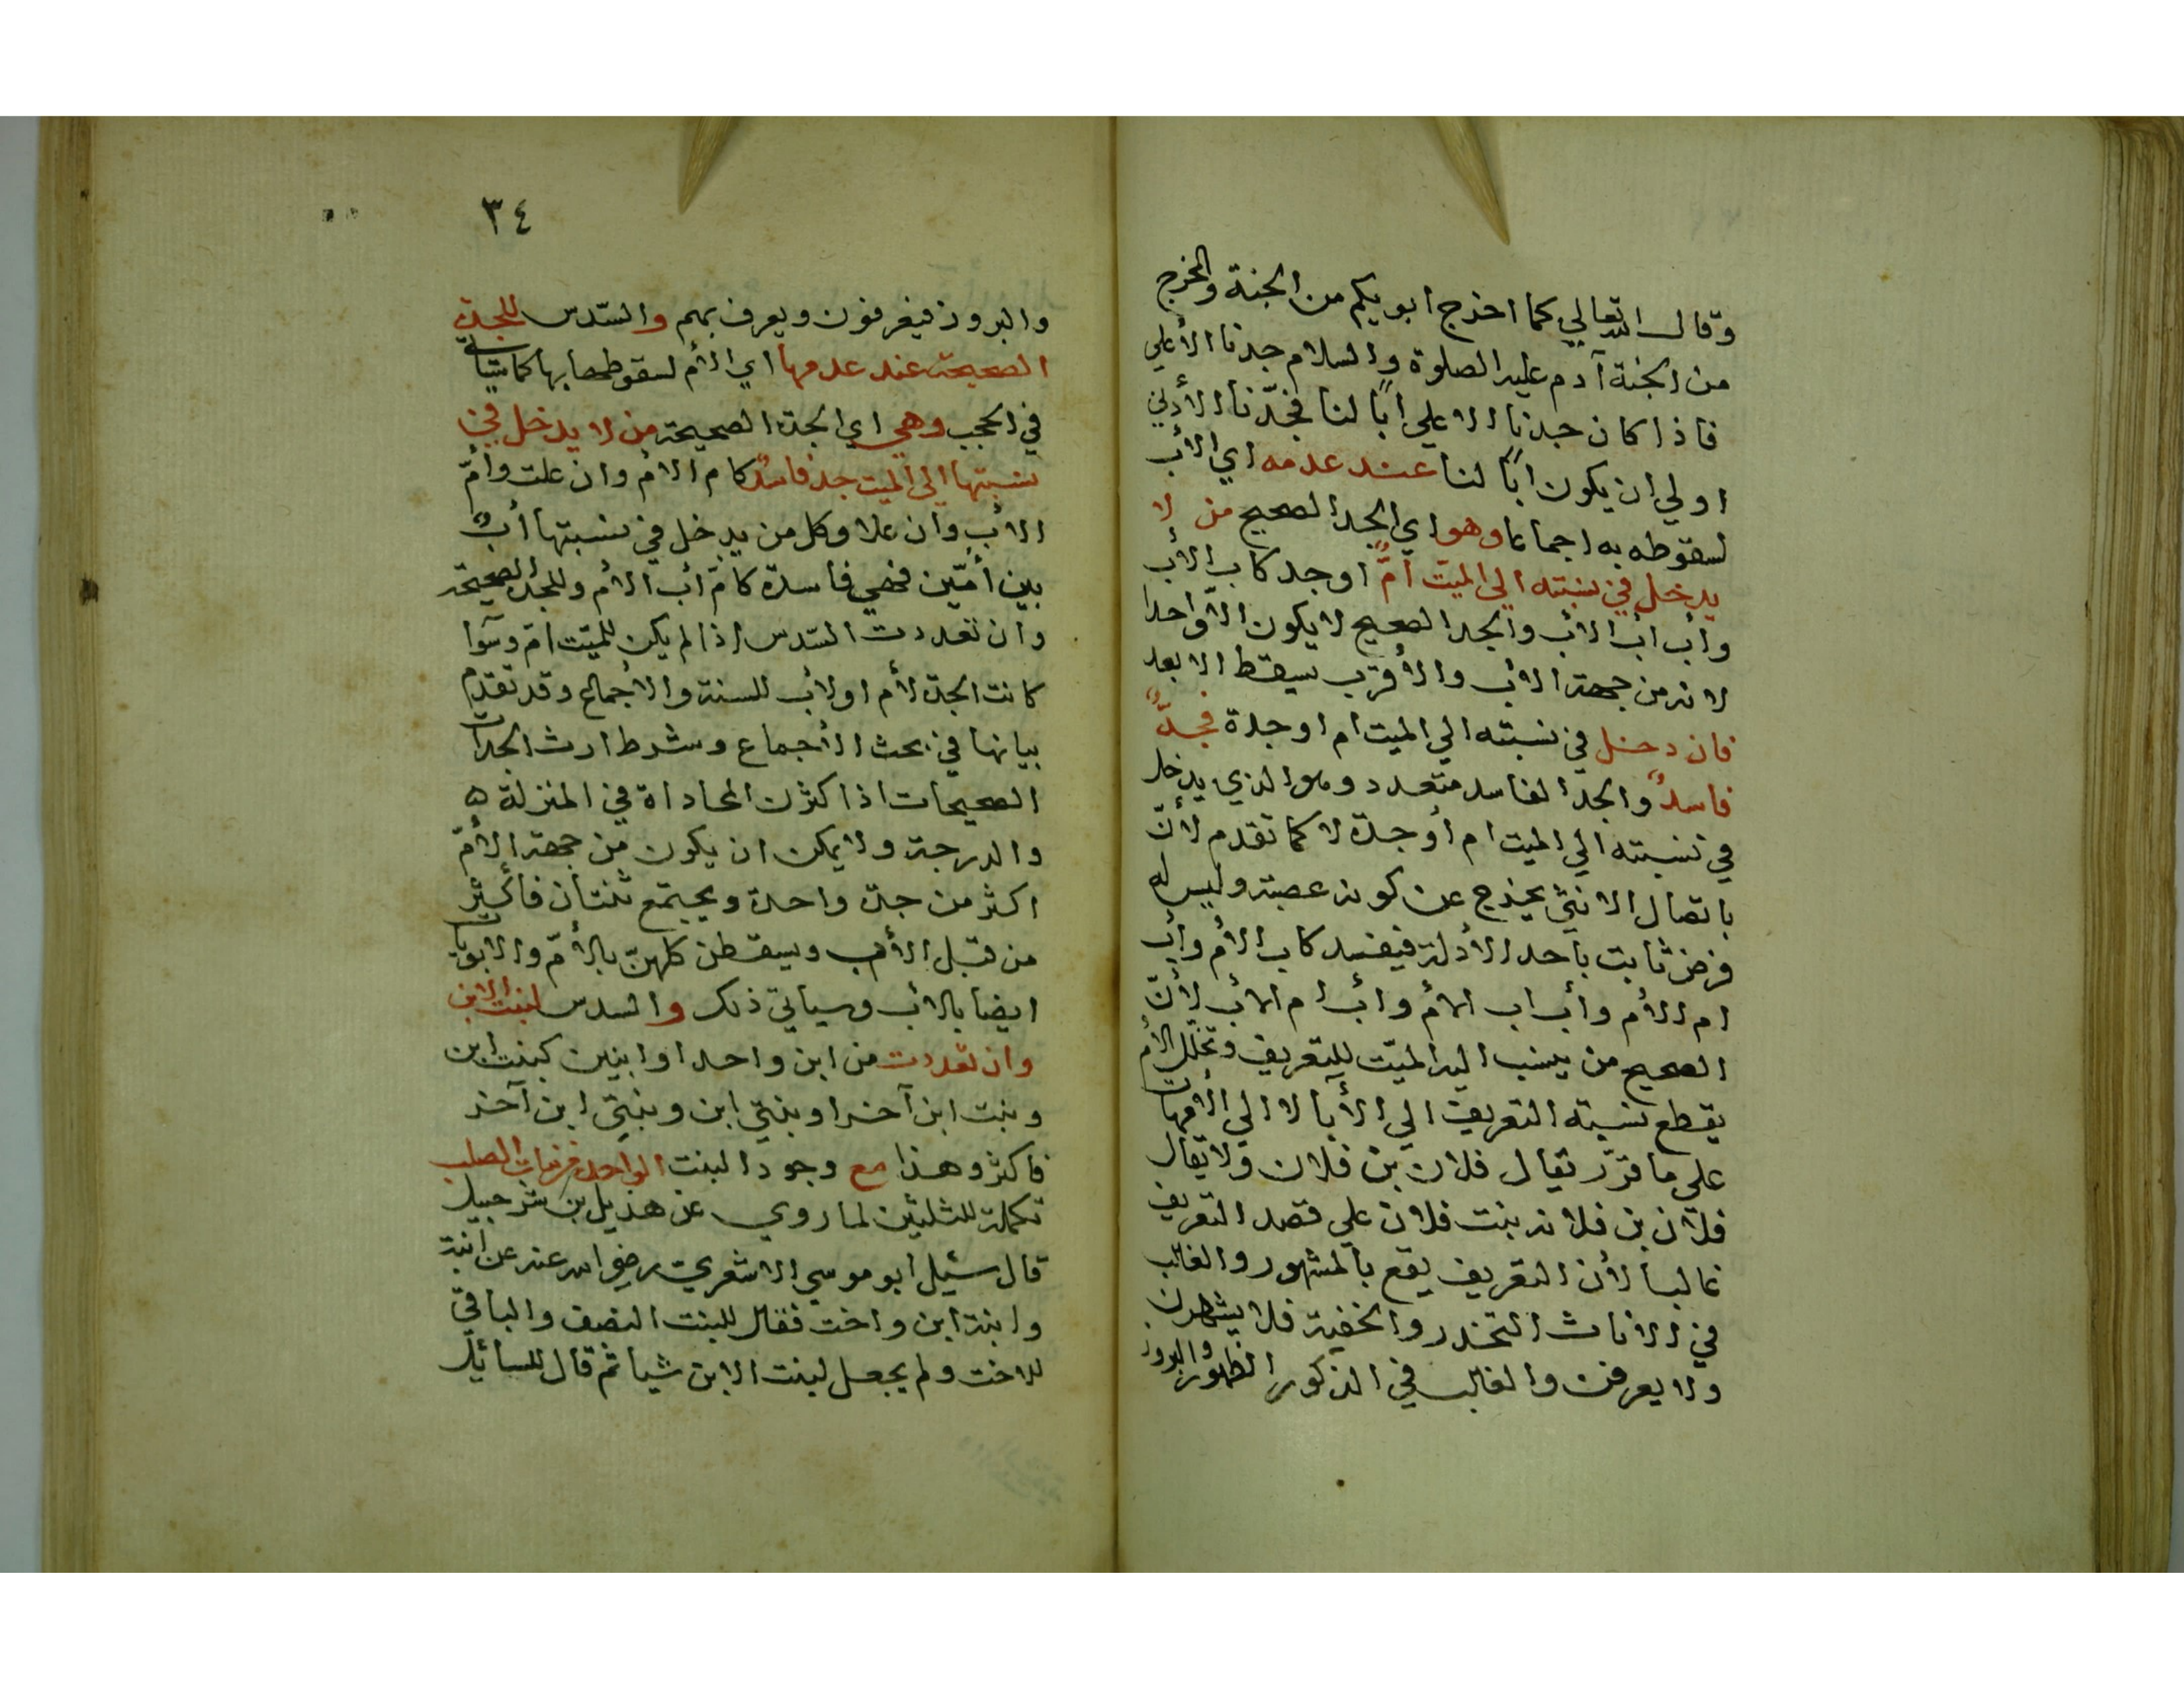 وقال الله تعالي كما اخرج ابويكم من الجنة والمخرج
من الجنة آدم عليه الصلوة والسلام جدنا الأعلي
فاذا كان جدنا الاعلي اباً لنا فجدّنا الأدني
اولي ان يكون اباً لنا عند عدمه اي الأب
لسقوطه به اجماعا وهو اي الجد الصحيح من لا
يدخل في نسبته الي الميّت أمٌّ او جد كاب الأب
وأب أب الأب والجد الصحيح لا يكون الّا واحدا
لانه من جهة الأب والأقرب يسقط الابعد
فان دخل في نسبته الي الميت ام او جدة فجدٌّ
فاسدٌ والجد الفاسد متعدد وهو الذي يدخل
في نسبته الي الميت ام أو جدة لا كما تقدم لأنّ
باتصال الانثي يخرج عن كونه عصبة وليس له
فرض ثابت باحد الأدلة فيفسد كاب الأم وأب
ام الأم وأب اب الأم وأب ام الأب لأنّ
الصحيح من ينسب اليه الميّت للتعريف وتخلّل الأم
يقطع نسبته التعريف الي الأبا لا الي الأمهات
علي ما قرّر يقال فلان بن فلان ولا يقال
فلان بن فلانه بنت فلان علي قصد التعريف
غالبا لأن التعريف يقع بالمشهور والغالب
في الاناث التخدر والخفية فلا يشهرن
ولا يعرفن والغالب في الذكور الظهور والبروز
٣٤
والبروز فيعرفون ويعرف بهم والسّدس للجدة
الصحيحة عند عدمها اي الأم لسقوطها بها كما سيأتي
في الحجب وهي اي الجدة الصحيحة من لا يدخل في
نسبتها الي الميت جد فاسدٌ كام الأم وان علت وأمّ
الأب وان علا وكل من يدخل في نسبتها أبٌ
بين أمّين فهي فاسدة كامّ أب الأم وللجدة الصحيحة
وان تعددت السّدس اذا لم يكن للميّت امّ وسوا
كانت الجدة لأم او لأب للسنة والأجماع وقد تقدم
بيانها في بحث الأجماع وشرط ارث الجدات
الصحيحات اذا كثرن المحاداة في المنزلة ه
والدرجة ولا يمكن ان يكون من جهة الأمّ
اكثر من جدة واحدة ويجتمع ثنتان فأكثر
من قبل الأب ويسقطن كلهنّ بالأمّ والأبويات
ايضا بالأب وسياتي ذلك والسدس لبنت الابن
وان تعددت من ابن واحد او ابنين كبنت ابن
وبنت ابن آخر او بنتي ابن وبنتي ابن آخر
فاكثر وهذا مع وجود البنت الواحدة من بنات الصلب
تكملة للثلثين لما روي عن هذيل بن شرحبيل
قال سئيل ابو موسي الاشعري رضي الله عنه عن ابنة
وابنة ابن واخت فقال للبنت النصف والباقي
للاخت ولم يجعل لبنت الابن شيا ثم قال للسائيل